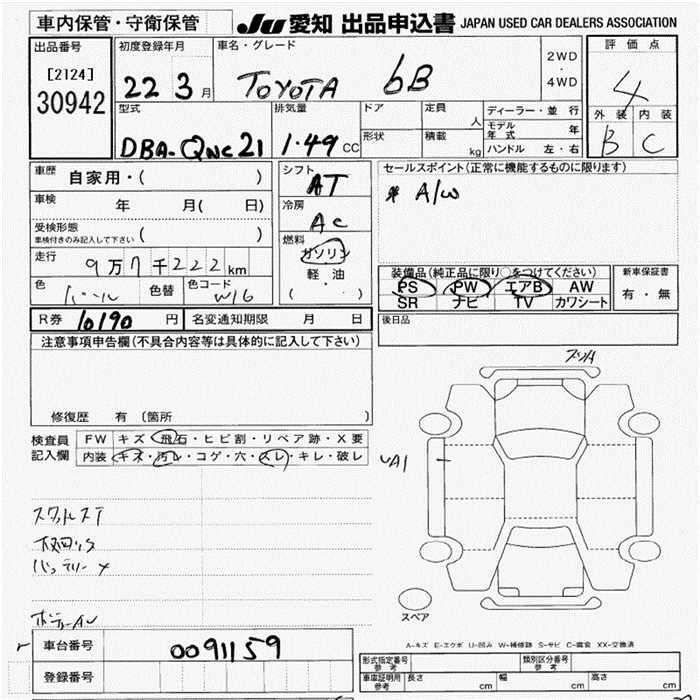 車内保管・守衛保管
Ju 愛知 出品申込書 JAPAN USED CAR DEALERS ASSOCIATION
出品番号
[2124]
30942
初度登録年月
22 3 月
車名・グレード
TOYOTA bB
2WD
・
4WD
評価点
4
外装 内装
B C
型式
DBA-QNC21
排気量
1.49 CC
ドア
形状
定員
人
積載
kg
ディーラー・並行
モデル年式 年
ハンドル 左・右
車歴
自家用・( )
車検 年 月( 日)
受検形態
車検付きのみ記入して下さい ( )
走行
9万7千222km
色
色替
色コード
W16
シフト
AT
冷房
AC
燃料
ガソリン
・
軽油
( ・ )
セールスポイント(正常に機能するものに限ります)
* A/W
装備品(純正品に限り○をつけてください)
PS PW エアB AW
SR ナビ TV カワシート
新車保証書
有・無
R券 10190 円
名変通知期限 月 日
後日品
注意事項申告欄(不具合内容等は具体的に記入して下さい)
修復歴 有 (箇所 )
検査員記入欄
FW キズ・飛石・ヒビ割・リペア跡・X要
内装 キズ・汚レ・コゲ・穴・スレ・キレ・破レ
UA1
スペア
A-キズ E-エクボ U-凹み W-補修跡 S-サビ C-腐食 XX-交換済
車台番号
0091159
登録番号
形式指定番号 参考
類別区分番号 参考
車庫証明用 参考
長さ cm
幅 cm
高さ cm